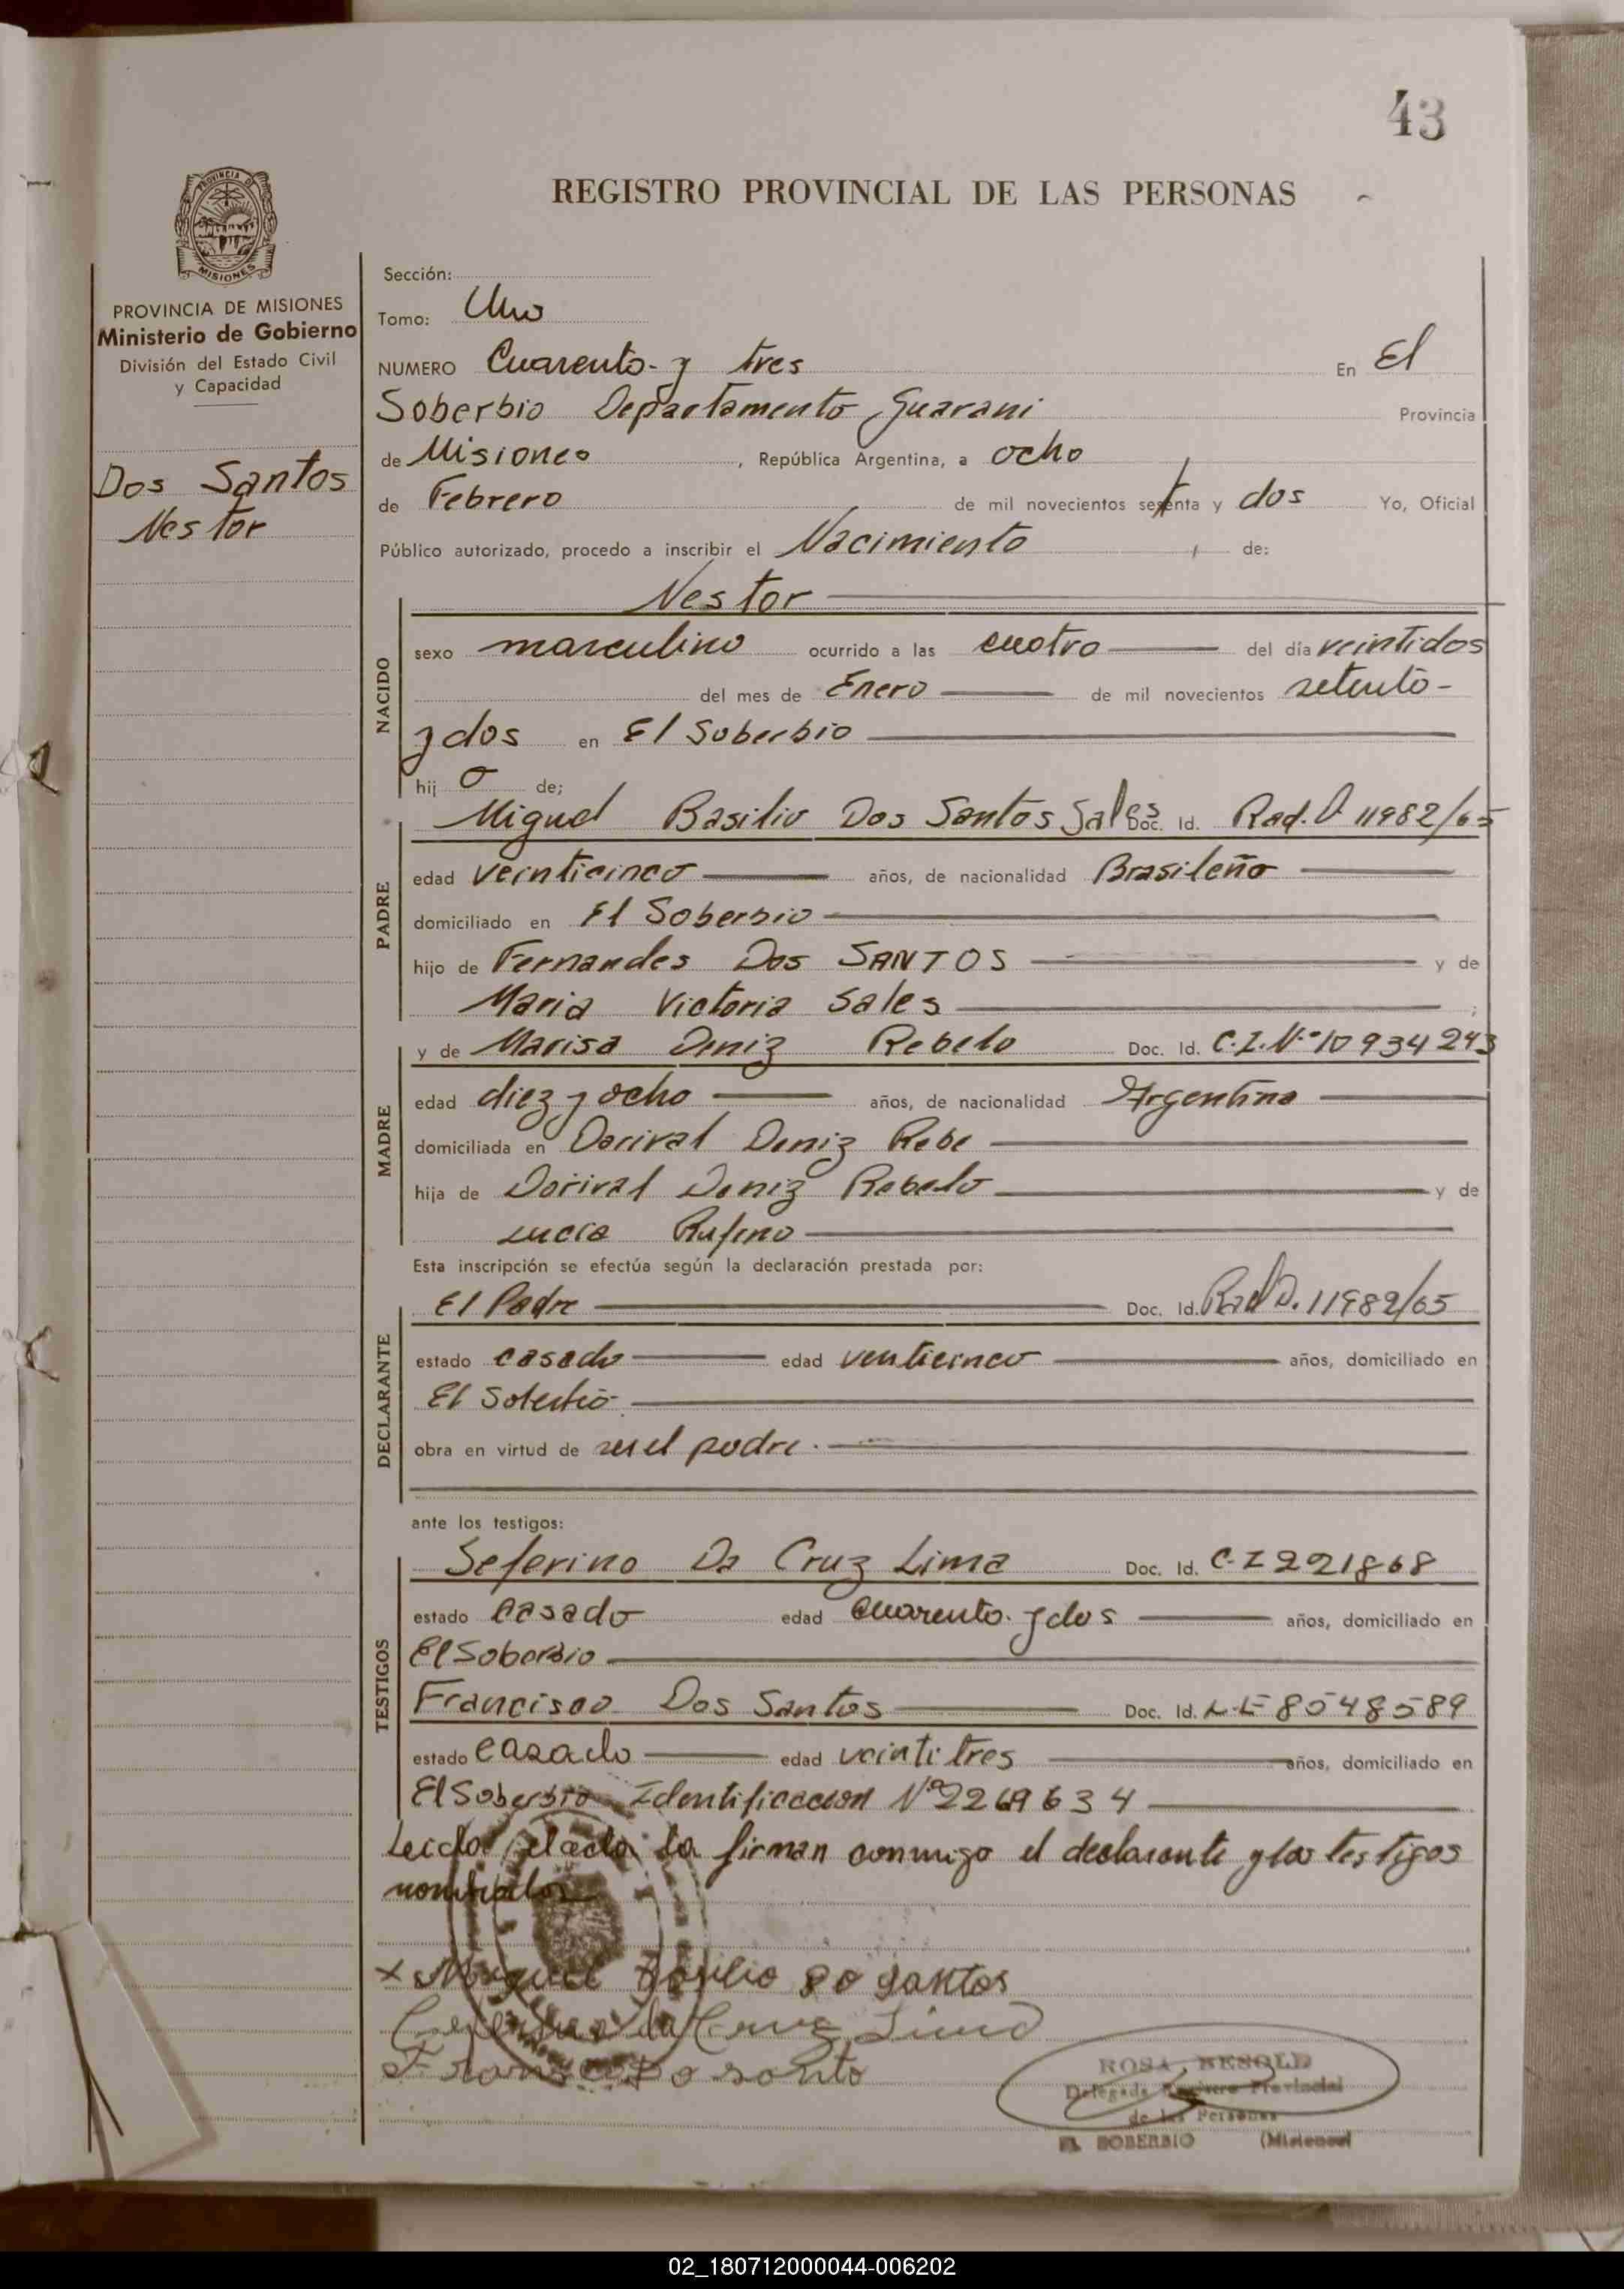 43
REGISTRO PROVINCIAL DE LAS PERSONAS
PROVINCIA DE
MISIONES
PROVINCIA DE MISIONES
Ministerio de Gobierno
División del Estado Civil
y Capacidad
Dos Santos
Nestor
Sección:
Tomo: Uno
NUMERO Cuarenta y tres En El
Soberbio Departamento Guarani Provincia
de Misiones, República Argentina, a ocho
de Febrero de mil novecientos setenta y dos Yo, Oficial
Público autorizado, procedo a inscribir el Nacimiento de:
NACIDO
Nestor
sexo masculino ocurrido a las cuatro del día veintidos
del mes de Enero de mil novecientos setenta
y dos en El Soberbio
hij o de;
PADRE
Miguel Basilio Dos Santos Sales Doc. Id. Rad. D 11982/65
edad veinticinco años, de nacionalidad Brasileño
domiciliado en El Soberbio
hijo de Fernandes Dos SANTOS y de
Maria Victoria Sales ;
MADRE
y de Marisa Deniz Rebelo Doc. Id. C.I. Nº 10934243
edad diez y ocho años, de nacionalidad Argentina
domiciliada en Dorival Deniz Rebe
hija de Dorival Deniz Rebelo y de
Lucia Rufino
Esta inscripción se efectúa según la declaración prestada por:
DECLARANTE
El Padre Doc. Id. Rad D. 11982/65
estado casado edad venticinco años, domiciliado en
El Soberbio
obra en virtud de ser el padre.
ante los testigos:
TESTIGOS
Seferino Da Cruz Lima Doc. Id. C-I 221868
estado casado edad cuarenta y dos años, domiciliado en
El Soberbio
Francisco Dos Santos Doc. Id. L.E 8548589
estado casado edad veintitres años, domiciliado en
El Soberbio Identificacion Nº 2269634
Leida el acta la firman conmigo el declarante y los testigos
nombrados
x Miguel Basilio do santos
da Cruz Lima
Do santo
ROSA BESOLD
Delegada Registro Provincial
de las Personas
EL SOBERBIO (Misiones)
02_180712000044-006202